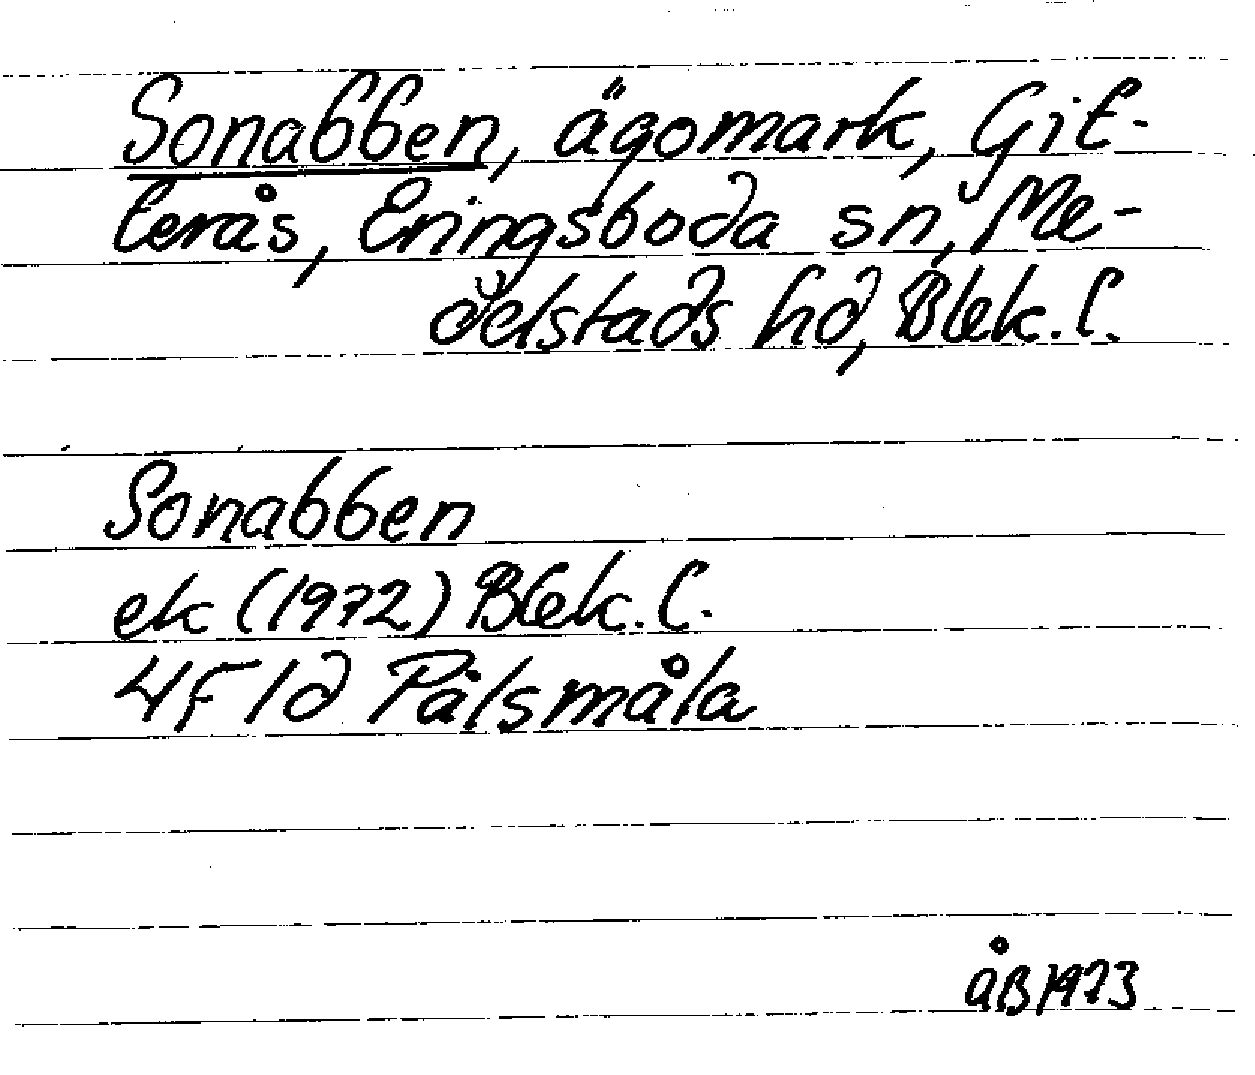 Sonabben, ägomark, Git-
terås, Eringsboda sn, Me-
delstads hd, Blek. l.
Sonabben
ek (1972) Blek. l.
4F1d Pålsmåla
ÅB 1973